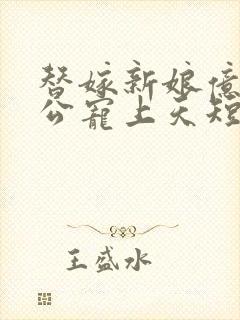 替嫁新娘億
公寵上天短
王盛水